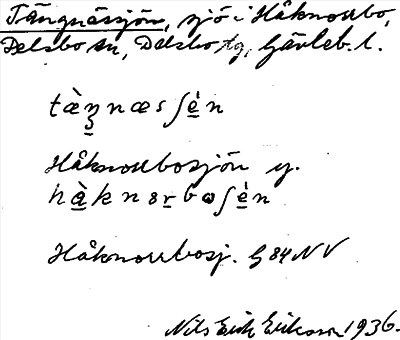 Tängnässjön, sjö i Håknorrbo,
Delsbo sn, Delsbo tg, Gävleb. l.
tàŋnæsʃèn
Håknorrbosjön y.
hàknərboʃèn
Håknorrbosj. G 84 NV
Nils Erik Eriksson 1936.